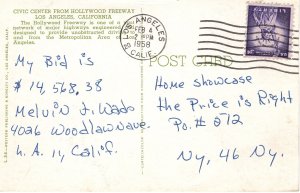 CIVIC CENTER FROM HOLLYWOOD FREEWAY
LOS ANGELES, CALIFORNIA
The Hollywood Freeway is one of a
network of major highways engineered
designed to provide unobstructed
and from the Metropolitan Area of
Angeles.
LOS ANGELES
FEB 4
PM
1958
CALIF.
POST CARD
My Bid is
$14,568.38
Melvin J. Wado
4026 Woodlawn ave.
L.A. 11, Calif.
Home showcase
the Price is Right
Po. # 512
Ny, 46 Ny.